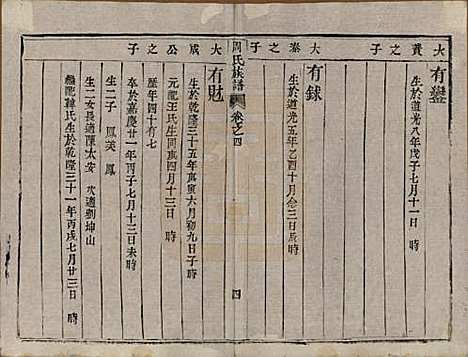 大貴之子
有鑾
生於道光八年戊子七月十一日　時
大泰之子
有銶
生於道光五年乙酉十月念三日辰時
周氏族譜　卷之四　四
大成公之子
有財
生於乾隆三十五年庚寅六月初九日子　時
元配王氏生同庚四月十三日　時
歷年四十有七
卒於嘉慶廿一年丙子七月十三日未時
生二子　鳳美　鳳
生一女長適陳太安　次適劉坤山
繼配韓氏生於乾隆三十一年丙戌七月廿三日　時